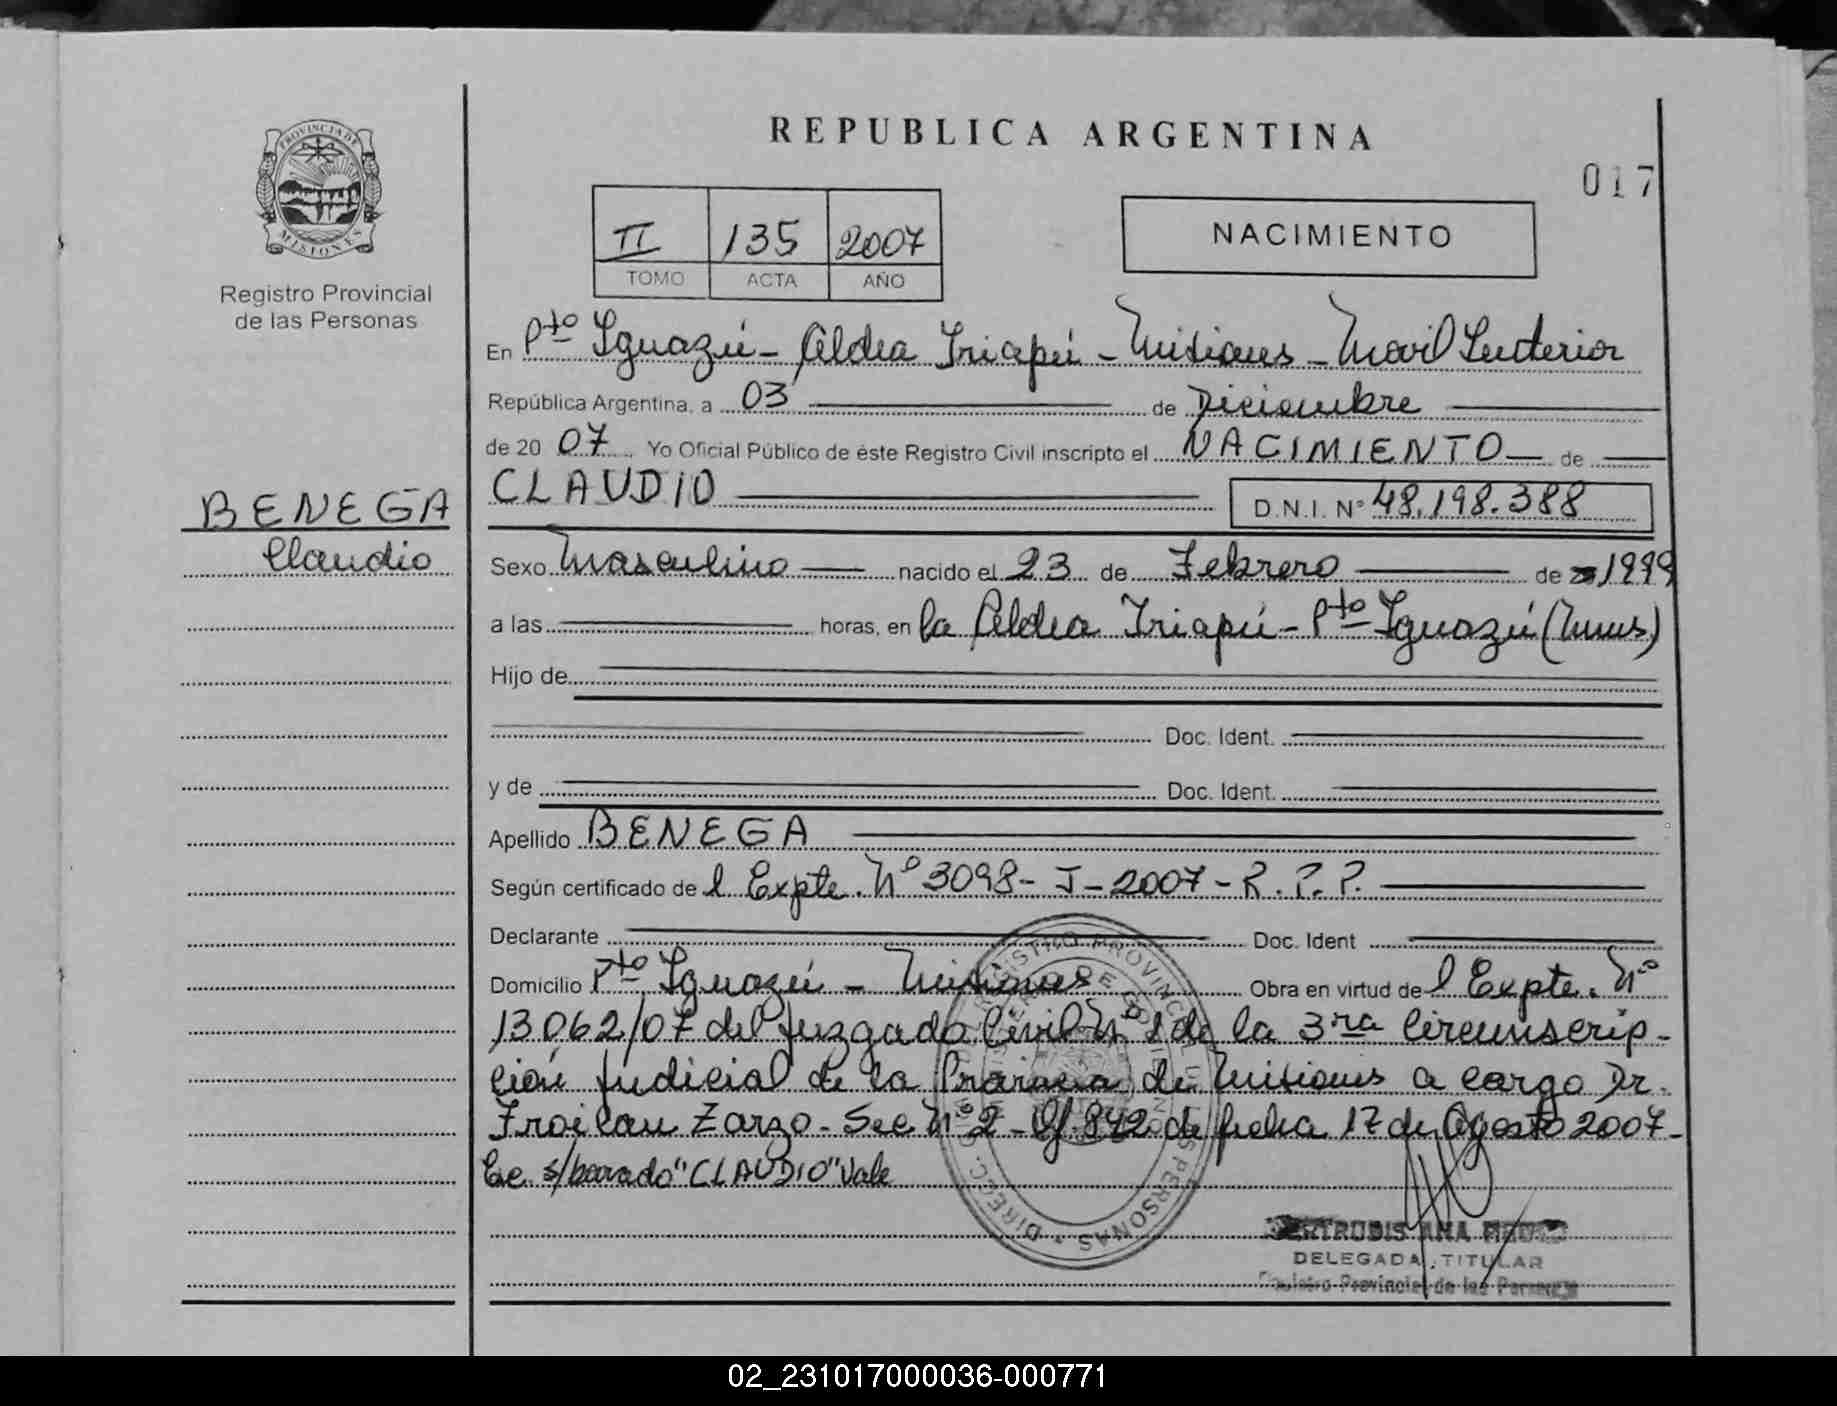 REPUBLICA ARGENTINA
017
PROVINCIA DE
MISIONES
Registro Provincial
de las Personas
II 135 2007
TOMO ACTA AÑO
NACIMIENTO
En Pto Iguazú - Aldea Iriapú - Misiones - Móvil Interior
República Argentina, a 03 de Diciembre
de 20 07 Yo Oficial Público de éste Registro Civil inscripto el NACIMIENTO de
BENEGA
Claudio
CLAUDIO D.N.I. Nº 48.198.388
Sexo Masculino nacido el 23 de Febrero de 1999
a las horas, en la Aldea Iriapú - Pto Iguazú (Mnes)
Hijo de
Doc. Ident.
y de Doc. Ident.
Apellido BENEGA
Según certificado de l Expte. Nº 3098 - J - 2007 - R. P. P.
Declarante Doc. Ident
Domicilio Pto Iguazú - Misiones Obra en virtud de l Expte. Nº
13062/07 del Juzgado Civil Nº 1 de la 3ra Circunscrip-
ción Judicial de la Provincia de Misiones a cargo Dr.
Froilan Zarzo - Sec Nº 2 - Of. 842 de fecha 17 de Agosto 2007 -
s/borrado "CLAUDIO" Vale
REGISTRO PROVINCIAL DE LAS PERSONAS
DIRECC.
GERTRUDIS ANA
DELEGADA TITULAR
Registro Provincial de las Personas
02_231017000036-000771